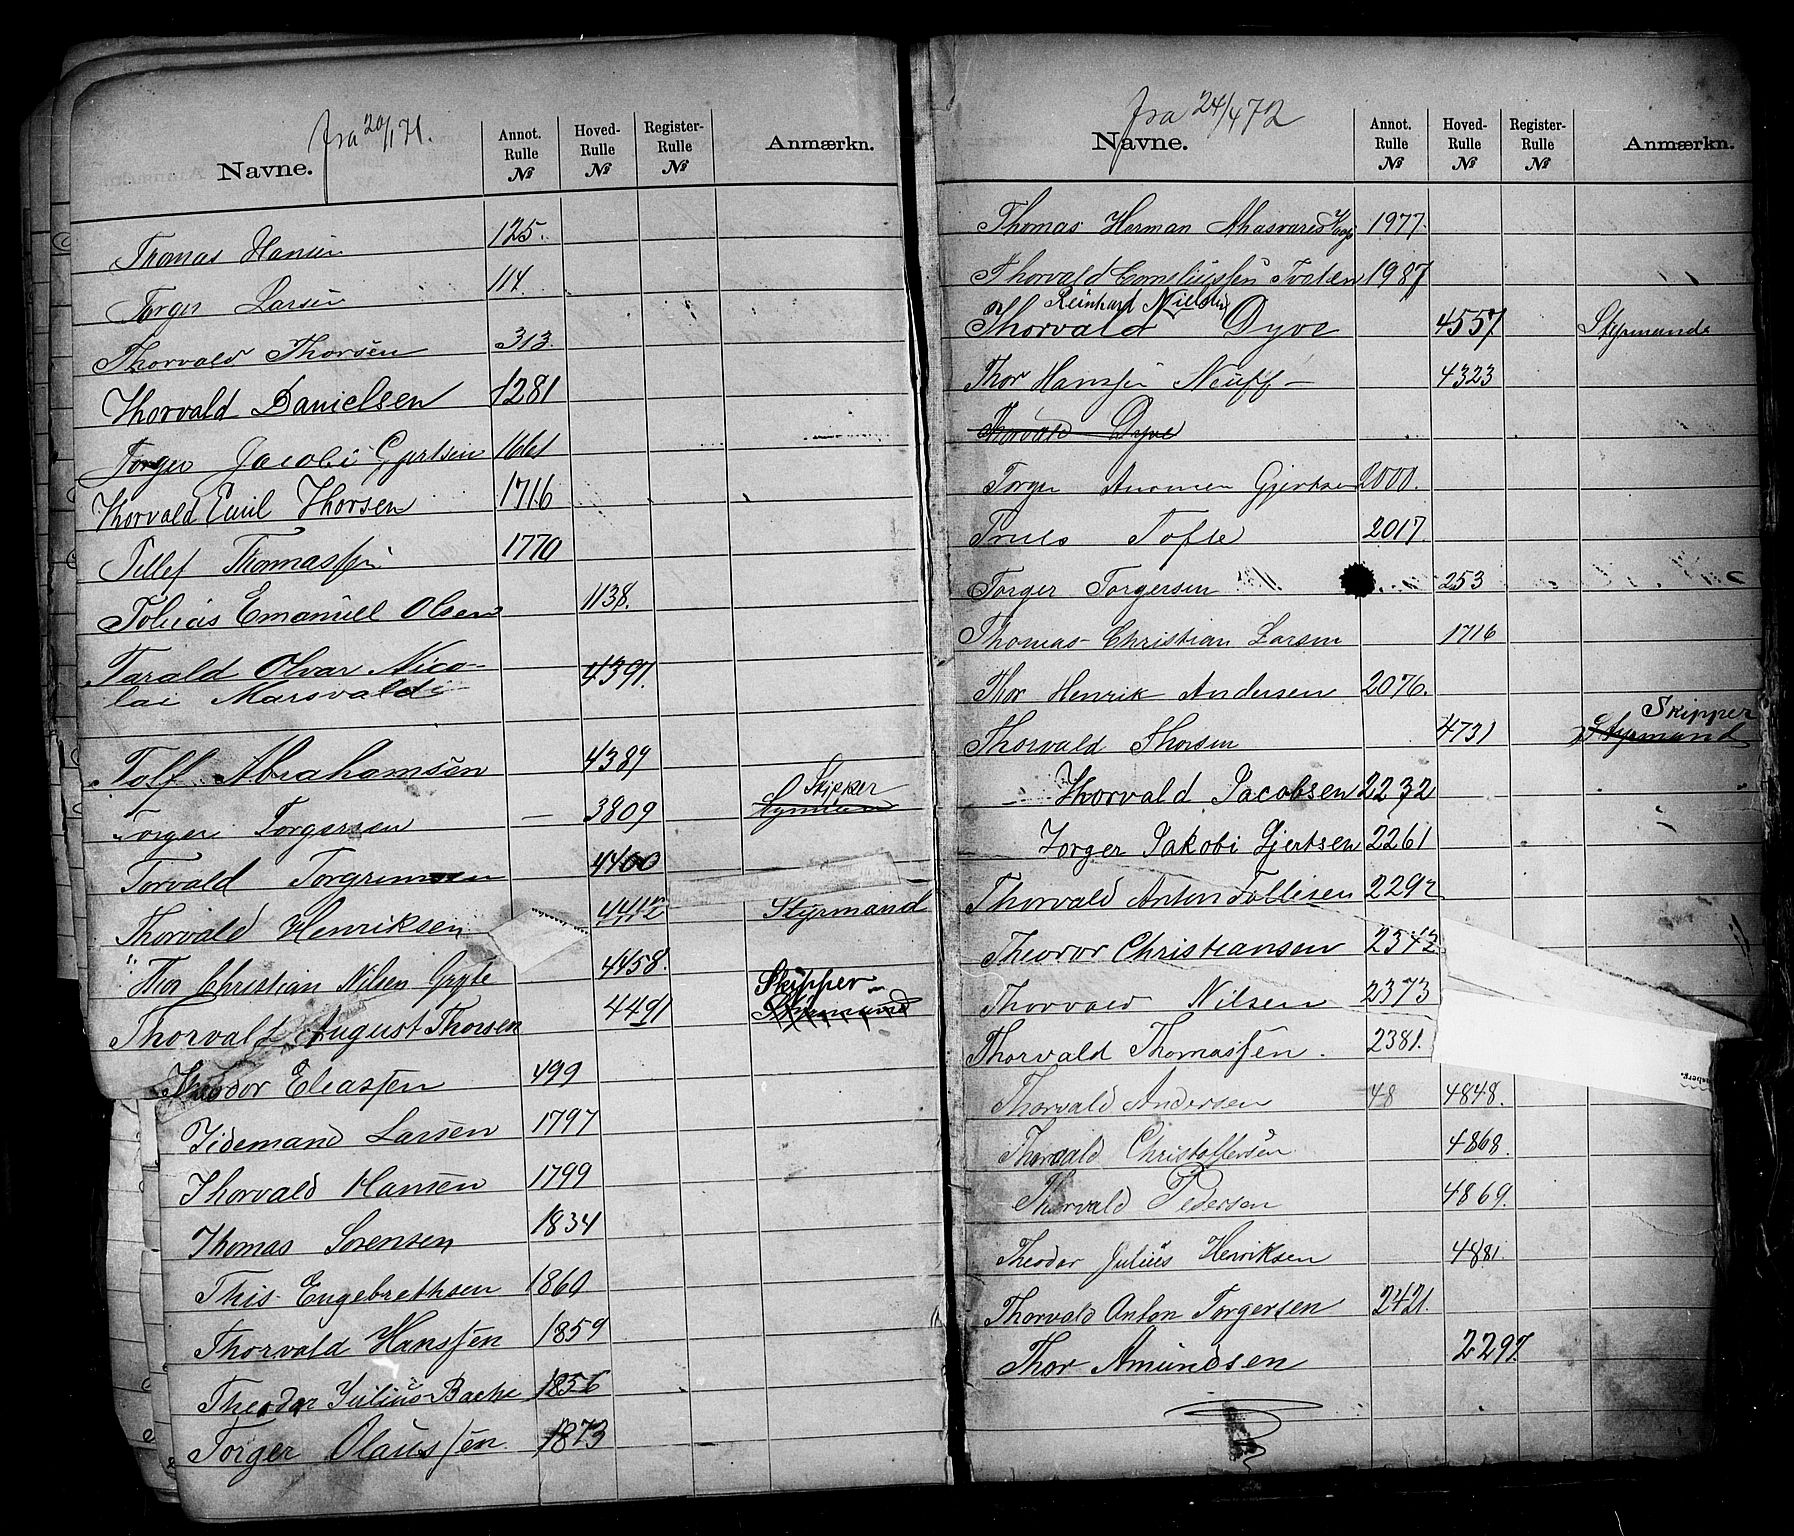 fra 20/1 71.
Navne. Annot. Rulle № Hoved- Rulle № Register- Rulle № Anmærkn.
Thomas Hansen 125.
Torger Larsen 114.
Thorvald Thorsen 313.
Thorvald Danielsen 1281
Torger Jacobi Gjertsen 1661
Thorvald Emil Thorsen 1716
Tellef Thomassen 1770
Tobias Emanuel Olsen 1138.
Tarald Olvar Nico-
lai Marsvaldi 4391.
Tolf Abrahamsen 4389
Skipper
Torger Torgersen — 3809
Torvald Torgrimsen 4400
Thorvald Henriksen 4412 Styrmand
Thor Christian Nilsen Gryte 4458.
Skipper
Thorvald August Thorsen 4491 Styrmand
Theodor Eliassen 499
Tidemand Larsen 1797
Thorvald Hansen 1799
Thomas Sorensen 1834
This Engebrethsen 1860
Thorvald Hanssen 1859
Theodor Julius Bache 1856
Torger Olaussen 1873
fra 24/4 72
Navne. Annot. Rulle № Hoved- Rulle № Register- Rulle № Anmærkn.
Thomas Herman 1977.
Thorvald Corneliussen Tveten 1987
Reinhard Nielsen
Thorvald Dyve 4557 Styrmand
Thor Hanssen Neuff — 4323
Thorvald Dyve
Torger Gjertsen 2000.
Truls Tofte 2017
Torger Torgersen 253
Thomas Christian Larsen 1716
Thor Henrik Andersen 2076.
Skipper
Thorvald Thorsen 4731 Styrmand
Thorvald Jacobsen 2232
Torger Jakobi Gjertsen 2261
Thorvald Anton Tollisen 2292
Theodor Christiansen 2342
Thorvald Nilsen 2373
Thorvald Thomassen. 2381.
Thorvald Andersen 48 4848.
Thorvald Christoffersen 4868.
Thorvald Pedersen 4869.
Theodor Julius Henriksen 4881.
Thorvald Anton Torgersen 2421.
Thor Amundsen 2297.